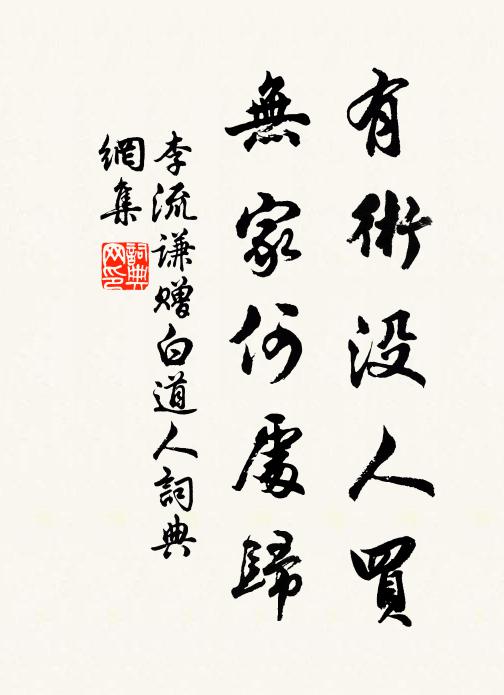 有術没人買
無家何處歸
李流谦贈白道人詞典
網集
詞典網印